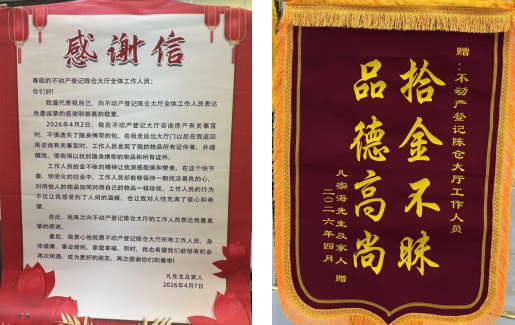 感谢信
尊敬的不动产登记陈仓大厅全体工作人员：
你们好！
我谨代表我自己，向不动产登记陈仓大厅全体工作人员表达
我最诚挚的感谢和崇高的敬意。
2026年4月2日，我在不动产登记大厅咨询房产有关事宜
时，不慎遗失了随身携带的包，在我走后出大厅门以后在我返回
再咨询有关事宜时，工作人员发现了我的物品所有证件等，并提
醒我，使我得以找到随身携带的物品和所有证件。
工作人员拾金不昧的精神让我深感敬佩和赞美，在这个快节
奏、物质化的社会中，工作人员却能够保持一颗纯洁善良的心，
对待他人的物品如同对待自己的物品一样珍视。工作人员的行为
不仅让我感受到了人间的温暖，也让我对人性充满了信心和希
望。
在此，我再次向不动产登记陈仓大厅的工作人员表达我最真
挚的感谢。
最后，我衷心地祝愿不动产登记陈仓大厅所有工作人员，身
体健康、事业顺利、家庭幸福。同时，我也希望我们能够有机会
再次相遇，成为更好的朋友。再次感谢你们的善举！
凡先生及家人
2026年4月7日
赠：不动产登记陈仓大厅工作人员
拾金不昧
品德高尚
凡崇海先生及家人 赠
二〇二六年四月